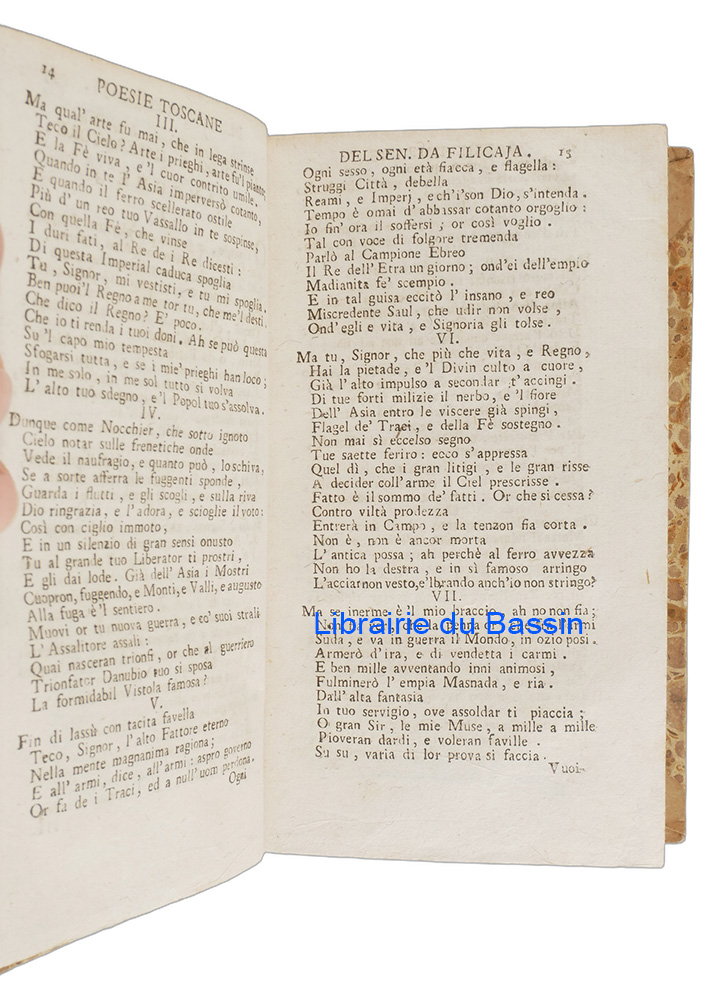 14
POESIE TOSCANE
III.
Ma qual' arte fu mai, che in lega strinse
Teco il Cielo? Arte i prieghi, arte fu'l pianto;
E la Fè viva, e 'l cuor contrito umile.
Quando in te l' Asia imperversò cotanto,
E quando il ferro scellerato ostile
Più d' un reo tuo Vassallo in te sospinse,
Con quella Fè, che vinse
I duri fati, al Re de i Re dicesti:
Di questa Imperial caduca spoglia
Tu, Signor, mi vestisti, e tu mi spoglia.
Ben puoi'l Regno a me tor tu, che me'l desti.
Che dico il Regno? E' poco.
Che io ti renda i tuoi doni. Ah se può questa
Su 'l capo mio tempesta
Sfogarsi tutta, e se i mie' prieghi han loco;
In me solo, in me sol tutto si volva
L' alto tuo sdegno, e 'l Popol tuo s'assolva.
IV.
Dunque come Nocchier, che sotto ignoto
Cielo notar sulle frenetiche onde
Vede il naufragio, e quanto può, lo schiva,
Se a sorte afferra le fuggenti sponde,
Guarda i flutti, e gli scogli, e sulla riva
Dio ringrazia, e l' adora, e scioglie il voto:
Così con ciglio immoto,
E in un silenzio di gran sensi onusto
Tu al grande tuo Liberator ti prostri,
E gli dai lode. Già dell' Asia i Mostri
Cuopron, fuggendo, e Monti, e Valli, e augusto
Alla fuga è 'l sentiero.
Muovi or tu nuova guerra, e co' suoi strali
L' Assalitore assali:
Quai nasceran trionfi, or che al guerriero
Trionfator Danubio suo si sposa
La formidabil Vistola famosa?
V.
Fin di lassù con tacita favella
Teco, Signor, l' alto Fattore eterno
Nella mente magnanima ragiona;
E all' armi, dice, all' armi: aspro governo
Or fa de i Traci, ed a null' uom perdona.
Ogni
DEL SEN. DA FILICAJA. 15
Ogni sesso, ogni età fiacca, e flagella:
Struggi Città, debella
Reami, e Imperj, e ch' i' son Dio, s'intenda.
Tempo è omai d' abbassar cotanto orgoglio:
Io fin' ora il soffersi; or così voglio.
Tal con voce di folgore tremenda
Parlò al Campione Ebreo
Il Re dell' Etra un giorno; ond'ei dell'empio
Madianita fe' scempio.
E in tal guisa eccitò l' insano, e reo
Miscredente Saul, che udir non volse,
Ond' egli e vita, e Signoria gli tolse.
VI.
Ma tu, Signor, che più che vita, e Regno,
Hai la pietade, e'l Divin culto a cuore,
Già l' alto impulso a secondar t' accingi.
Di tue forti milizie il nerbo, e 'l fiore
Dell' Asia entro le viscere già spingi,
Flagel de' Traci, e della Fè sostegno.
Non mai sì eccelso segno
Tue saette feriro: ecco s'appressa
Quel dì, che i gran litigi, e le gran risse
A decider coll' arme il Ciel prescrisse.
Fatto è il sommo de' fatti. Or che si cessa?
Contro viltà prodezza
Entrerà in Campo, e la tenzon fia corta.
Non è, non è ancor morta
L' antica possa; ah perchè al ferro avvezza
Non ho la destra, e in sì famoso arringo
L'acciar non vesto, e'l brando anch'io non stringo?
VII.
Ma se inerme è il mio braccio, ah no non fia;
Librairie du Bassin
Suda, e va in guerra il Mondo, in ozio posi.
Armerò d' ira, e di vendetta i carmi.
E ben mille avventando inni animosi,
Fulminerò l' empia Masnada, e ria.
Dall' alta fantasia
In tuo servigio, ove assoldar ti piaccia;
O gran Sir, le mie Muse, a mille a mille
Pioveran dardi, e voleran faville.
Su su, varia di lor prova si faccia.
Vuoi-